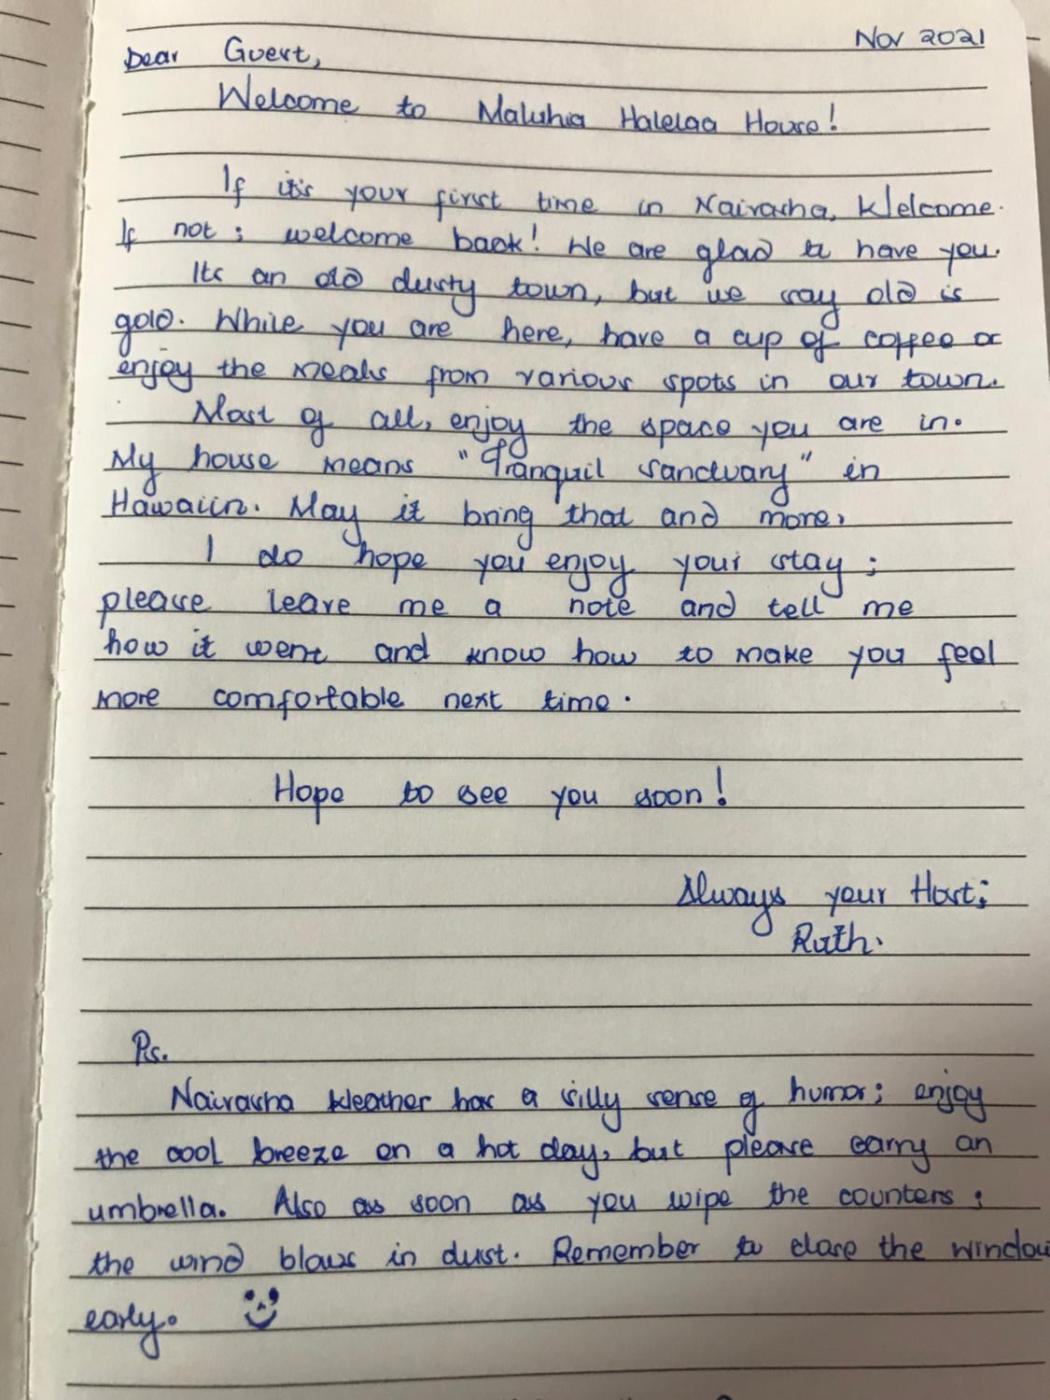 Nov 2021
Dear Guest,
Welcome to Maluhia Halelaa House!
If it's your first time in Naivasha, Welcome.
If not; welcome back! We are glad to have you.
Its an old dusty town, but we say old is
gold. While you are here, have a cup of coffee or
enjoy the meals from various spots in our town.
Most of all, enjoy the space you are in.
My house means "Tranquil sanctuary" in
Hawaiin. May it bring that and more,
I do hope you enjoy your stay;
please leave me a note and tell me
how it went and know how to make you feel
more comfortable next time.
Hope to see you soon!
Always your Host;
Ruth.
Ps.
Naivasha Weather has a silly sense of humor; enjoy
the cool breeze on a hot day, but please carry an
umbrella. Also as soon as you wipe the counters;
the wind blows in dust. Remember to close the window
early.